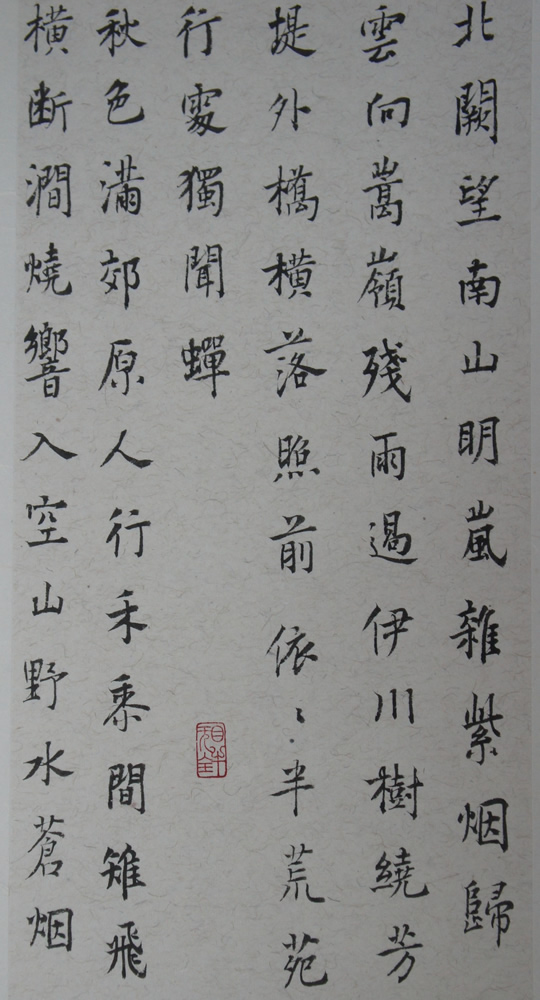 北闕望南山明嵐雜紫烟歸
雲向嵩嶺殘雨過伊川樹繞芳
堤外橋橫落照前依〻半荒苑
行處獨聞蟬
秋色滿郊原人行禾黍間雉飛
橫断澗燒響入空山野水蒼烟